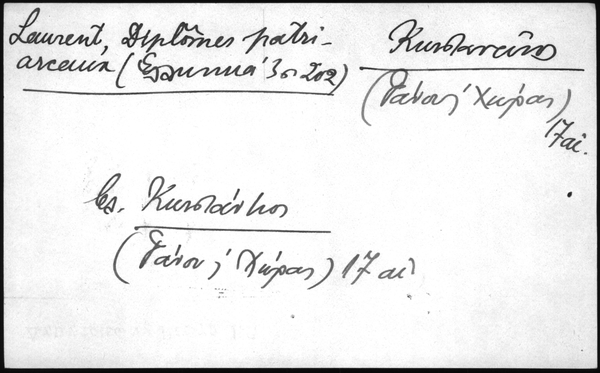 Laurent, Diplômes patri-
arcaux (Ἑλληνικά 3οι 202)
Κωνσταντῖνος
(Γάνου ς΄ Χώρας)
17 αἰ.
Βς. Κωνστάντιος
(Γάνου ς΄ Χώρας) 17 αἰ